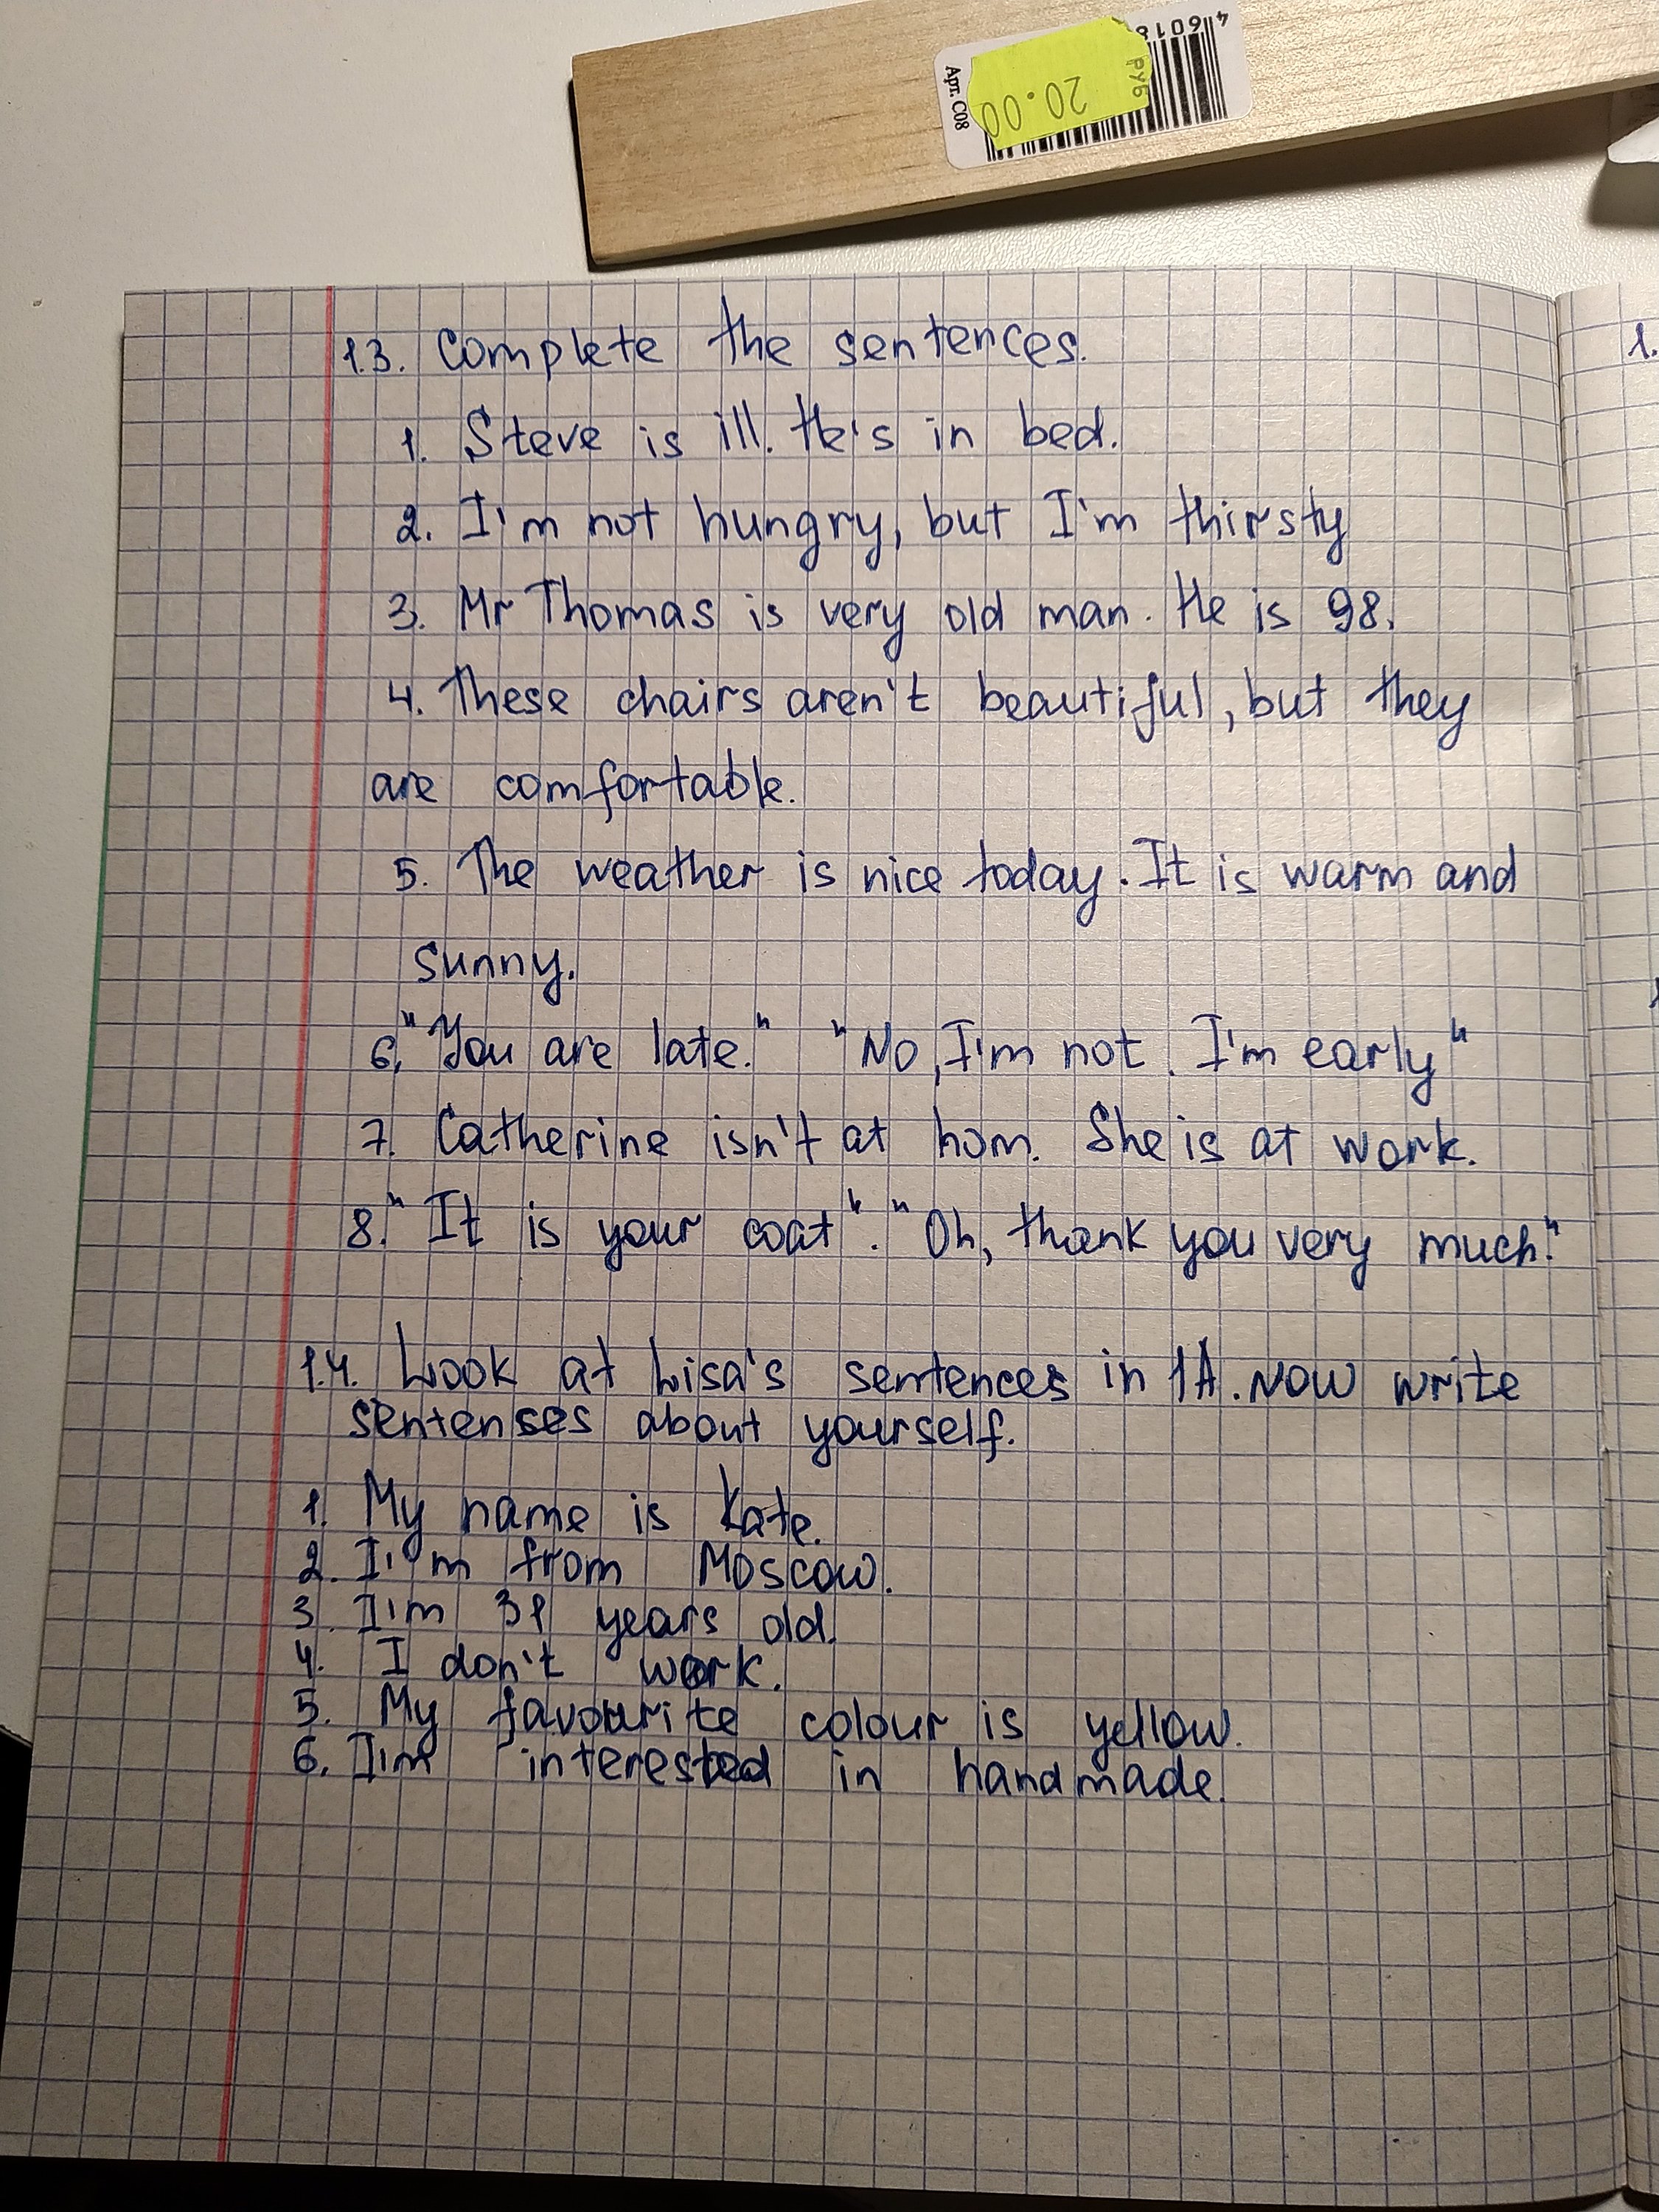 46018
руб
20.00
Арт. С08
1.3. Complete the sentences.
1. Steve is ill. He's in bed.
2. I'm not hungry, but I'm thirsty
3. Mr Thomas is very old man. He is 98.
4. These chairs aren't beautiful, but they
are comfortable.
5. The weather is nice today. It is warm and
sunny.
6. "You are late." "No, I'm not. I'm early"
7. Catherine isn't at hom. She is at work.
8. "It is your coat". "Oh, thank you very much."
1.4. Look at Lisa's sentences in 1A. Now write
sentenses about yourself.
1. My name is Kate.
2. I'm from Moscow.
3. I'm 31 years old.
4. I don't work.
5. My favourite colour is yellow.
6. I'm interested in handmade.
1.